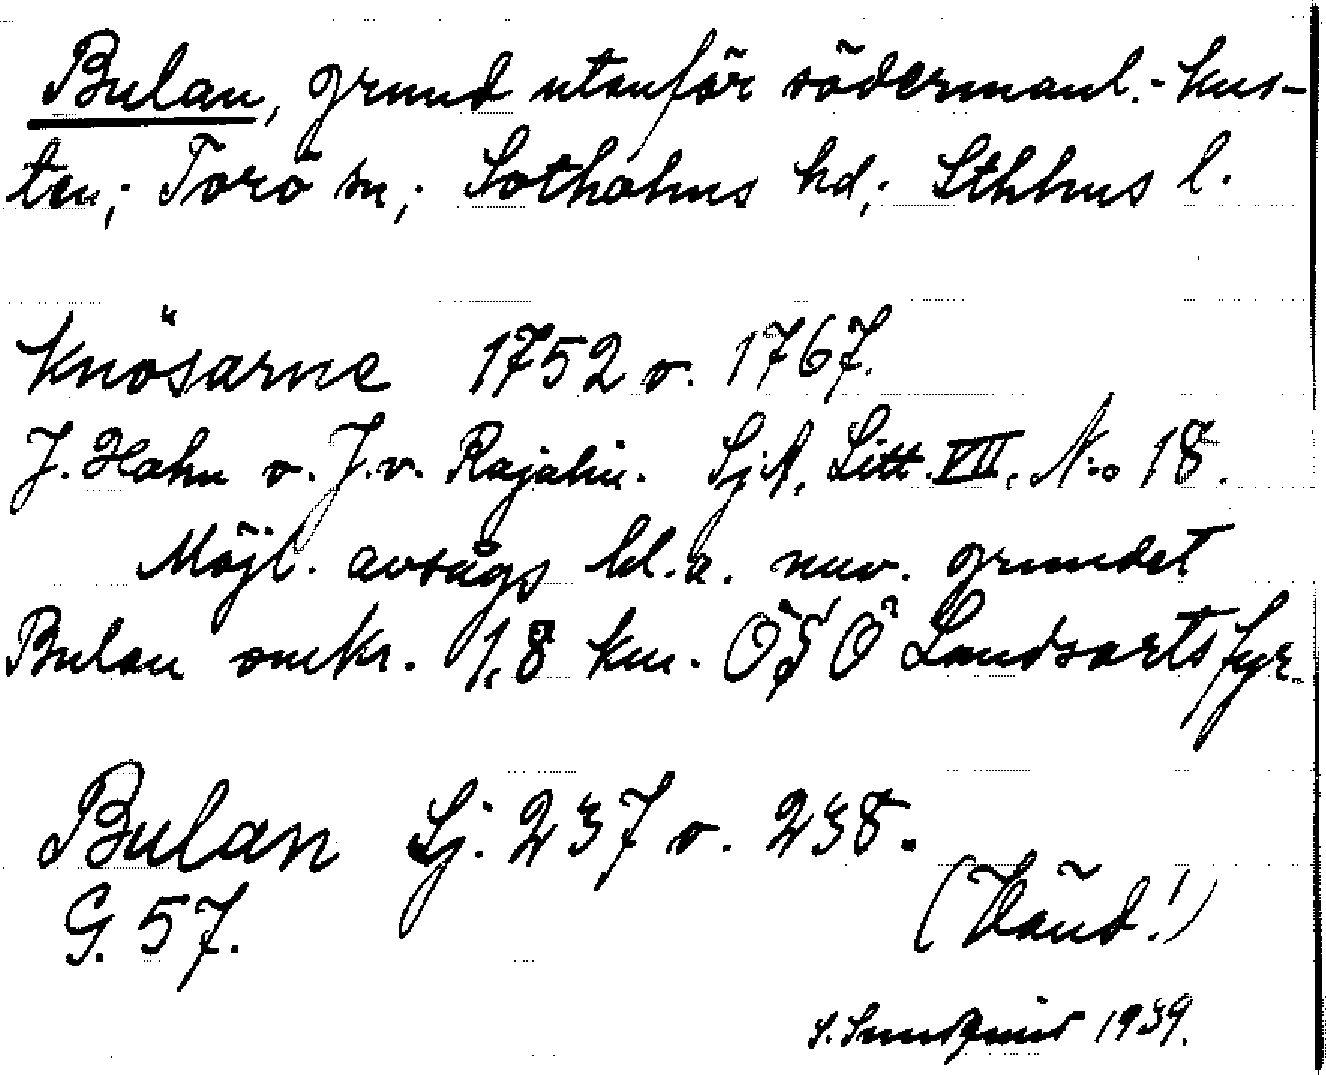 Bulan, grund utanför södermanl.-kus-
ten; Torö sn; Sotholms hd; Sthlms l.
Knösarne 1752 o. 1767.
J. Hahn o. J. v. Rajalin. Sj.A. Litt. VII. N:o 18.
Möjl. avsågs bl.a. nuv. grundet
Bulan omkr. 1,8 km. OSO Landsorts fyr.
Bulan Sj. 237 o. 238.
G. 57.
(Vänd!)
S. Sundqvist 1939.